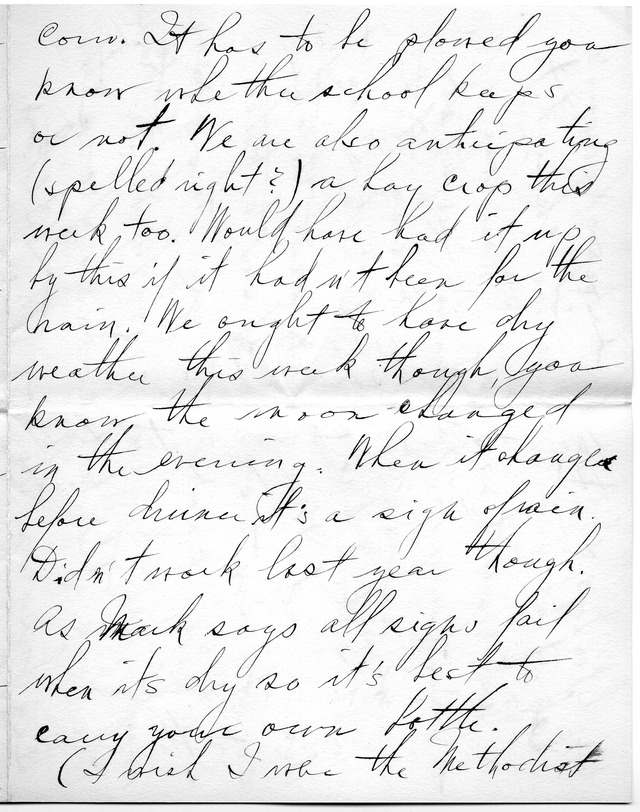 corn. It has to be plowed you
know whether school keeps
or not. We are also anticipating
(spelled right?) a hay crop this
week too. Would have had it up
by this if it hadn't been for the
rain. We ought to have dry
weather this week though, you
know the moon changed
in the evening. When it changes
before dinner it's a sign of rain.
Didn't work last year though.
As Mark says all signs fail
when its dry so it's best to
carry your own bottle.
(I wish I were the Methodist